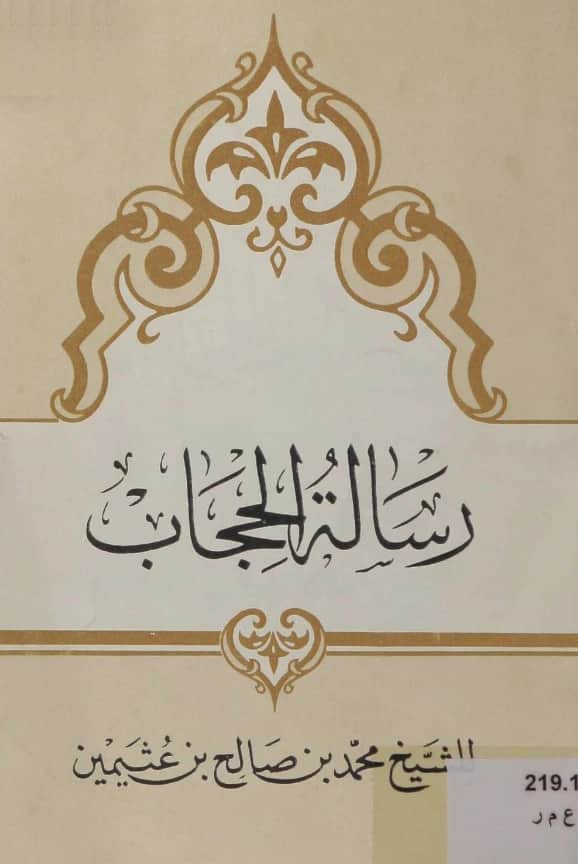 رسالة الحجاب
للشيخ محمد بن صالح بن عثيمين
219.1
ع م ر